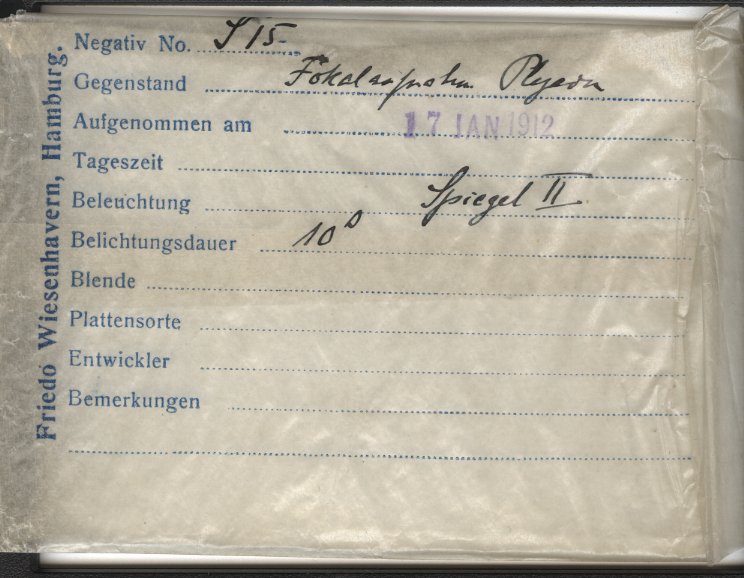 Friedo Wiesenhavern, Hamburg.
Negativ No. S 15
Gegenstand Fokalaufnahm. Plejaden
Aufgenommen am 17 JAN 1912
Tageszeit
Beleuchtung Spiegel II
Belichtungsdauer 10s
Blende
Plattensorte
Entwickler
Bemerkungen